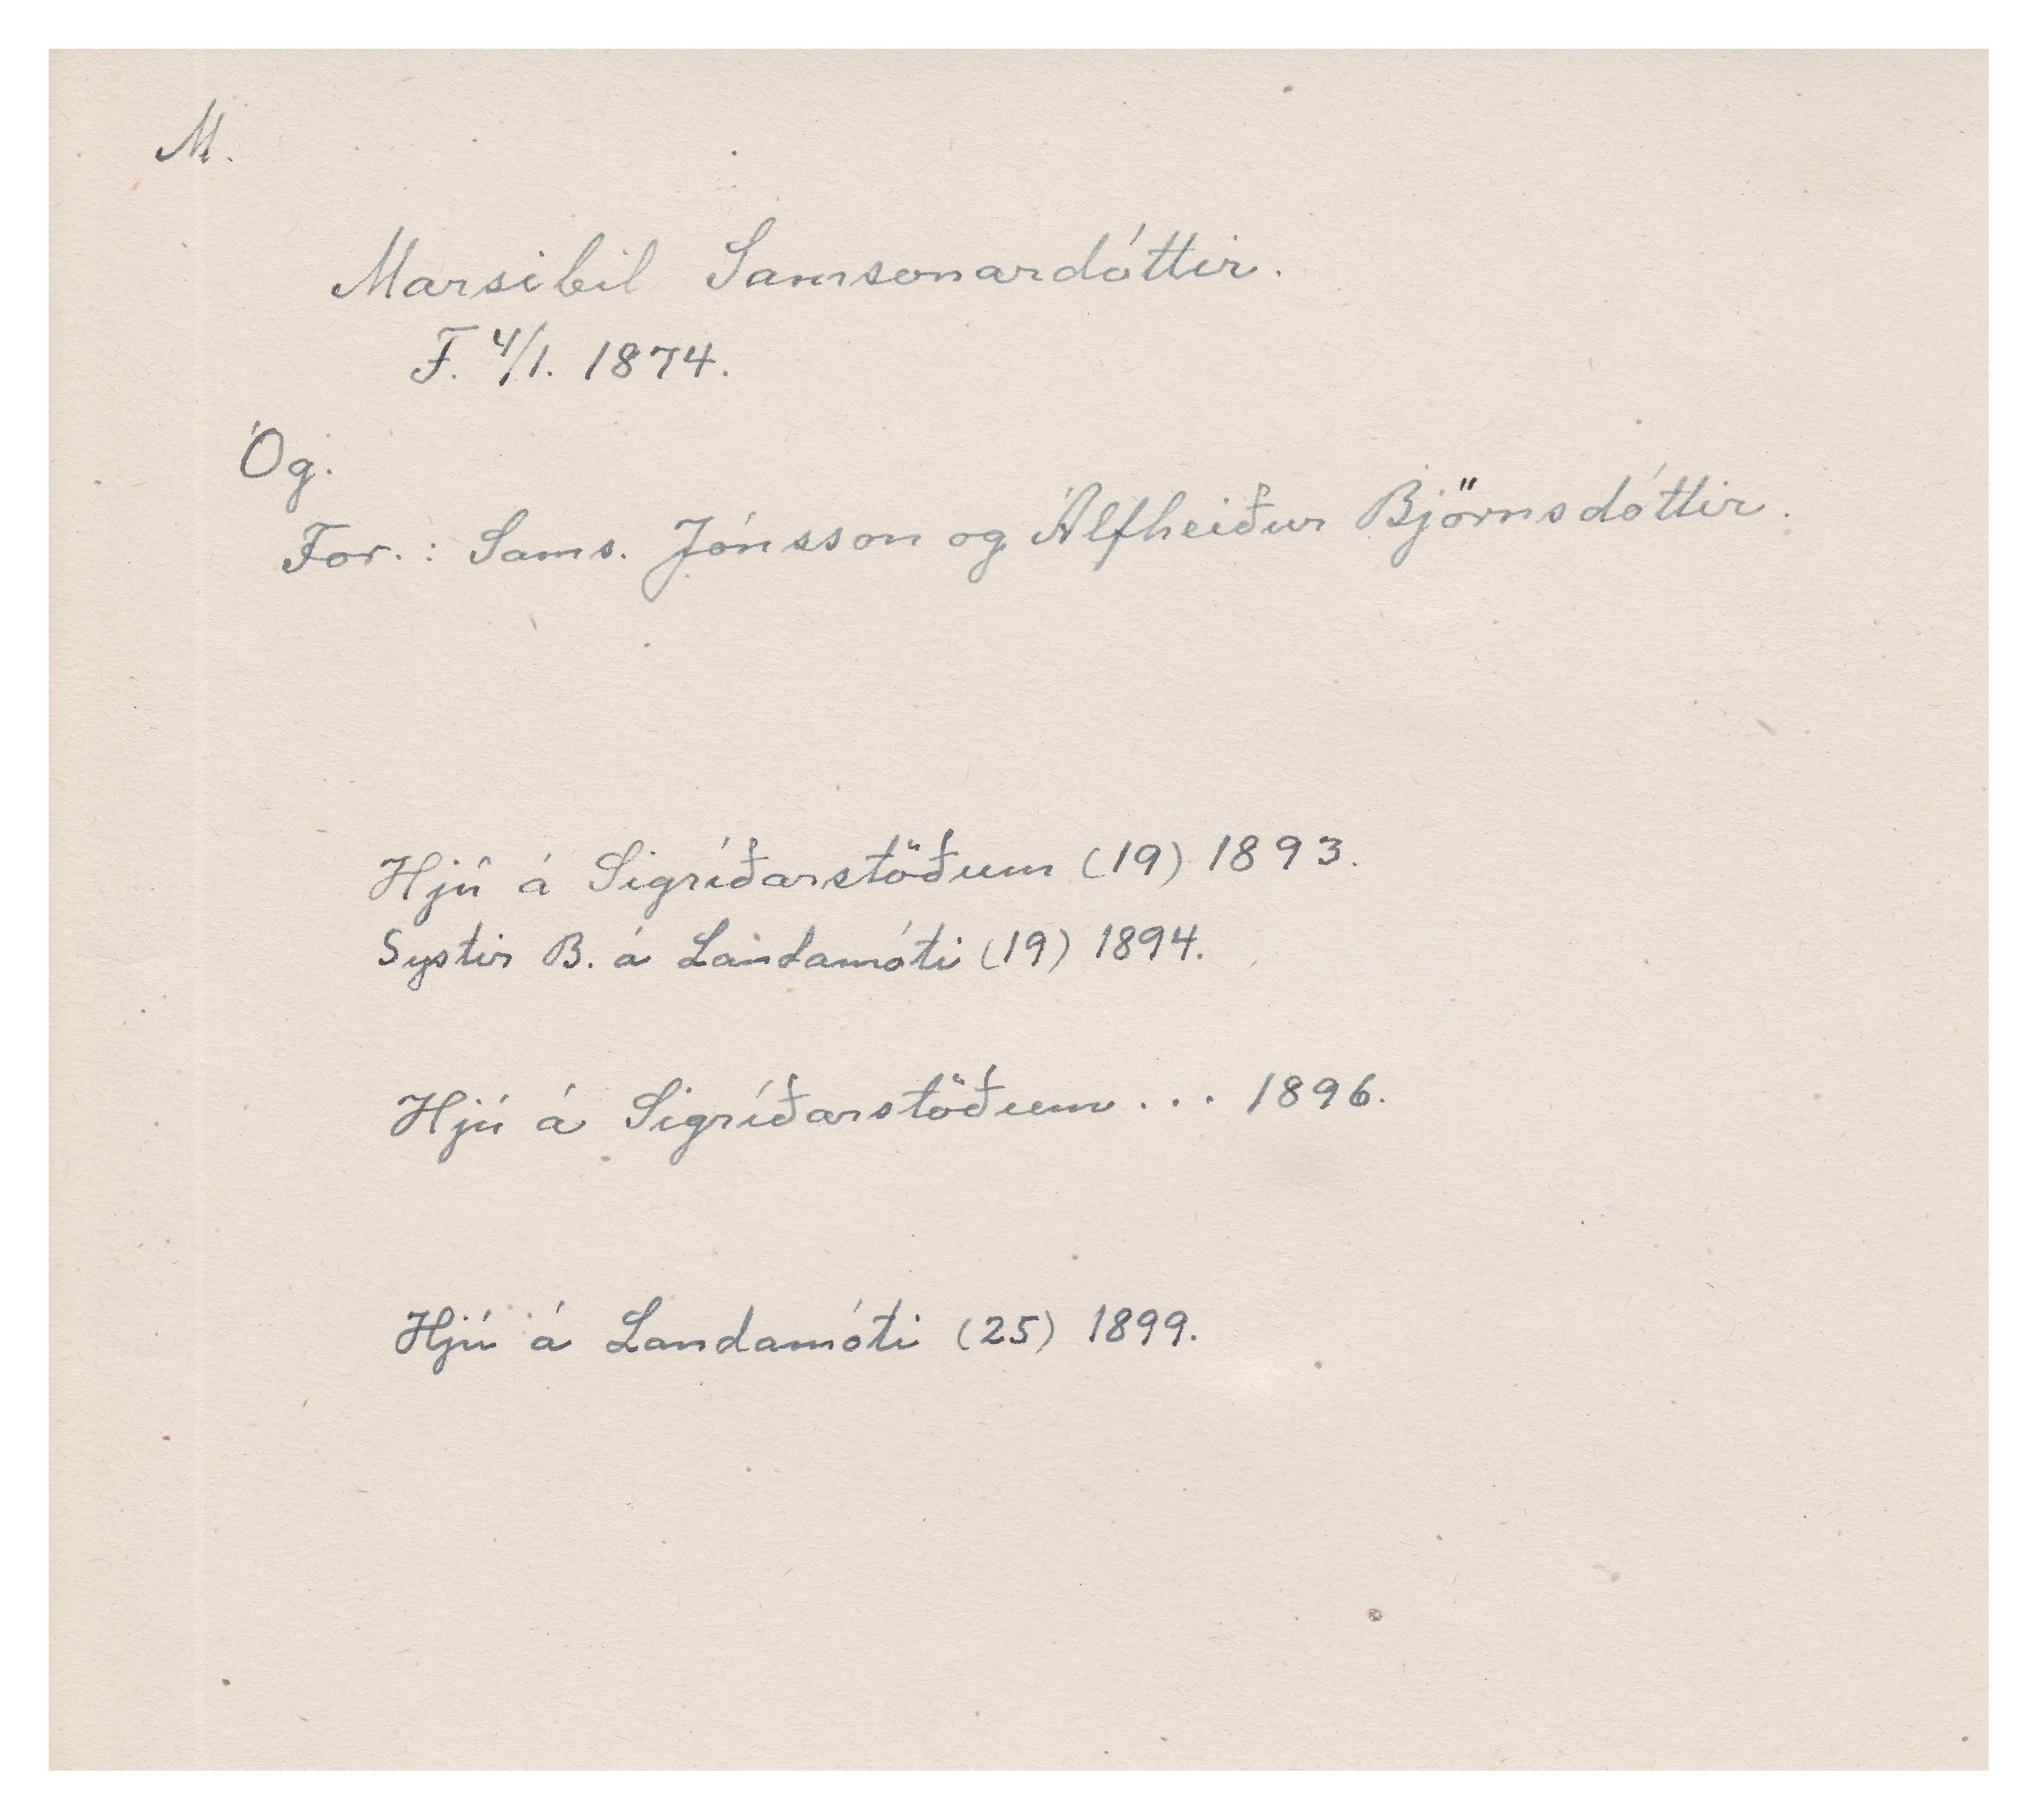 M.
Marsibil Samsonardóttir.
F. 4/1. 1874.
Óg.
For.: Sams. Jónsson og Álfheiður Björnsdóttir.
Hjú á Sigríðarstöðum (19) 1893.
Systir B. á Landamóti (19) 1894.
Hjú á Sigríðarstöðum... 1896.
Hjú á Landamóti (25) 1899.